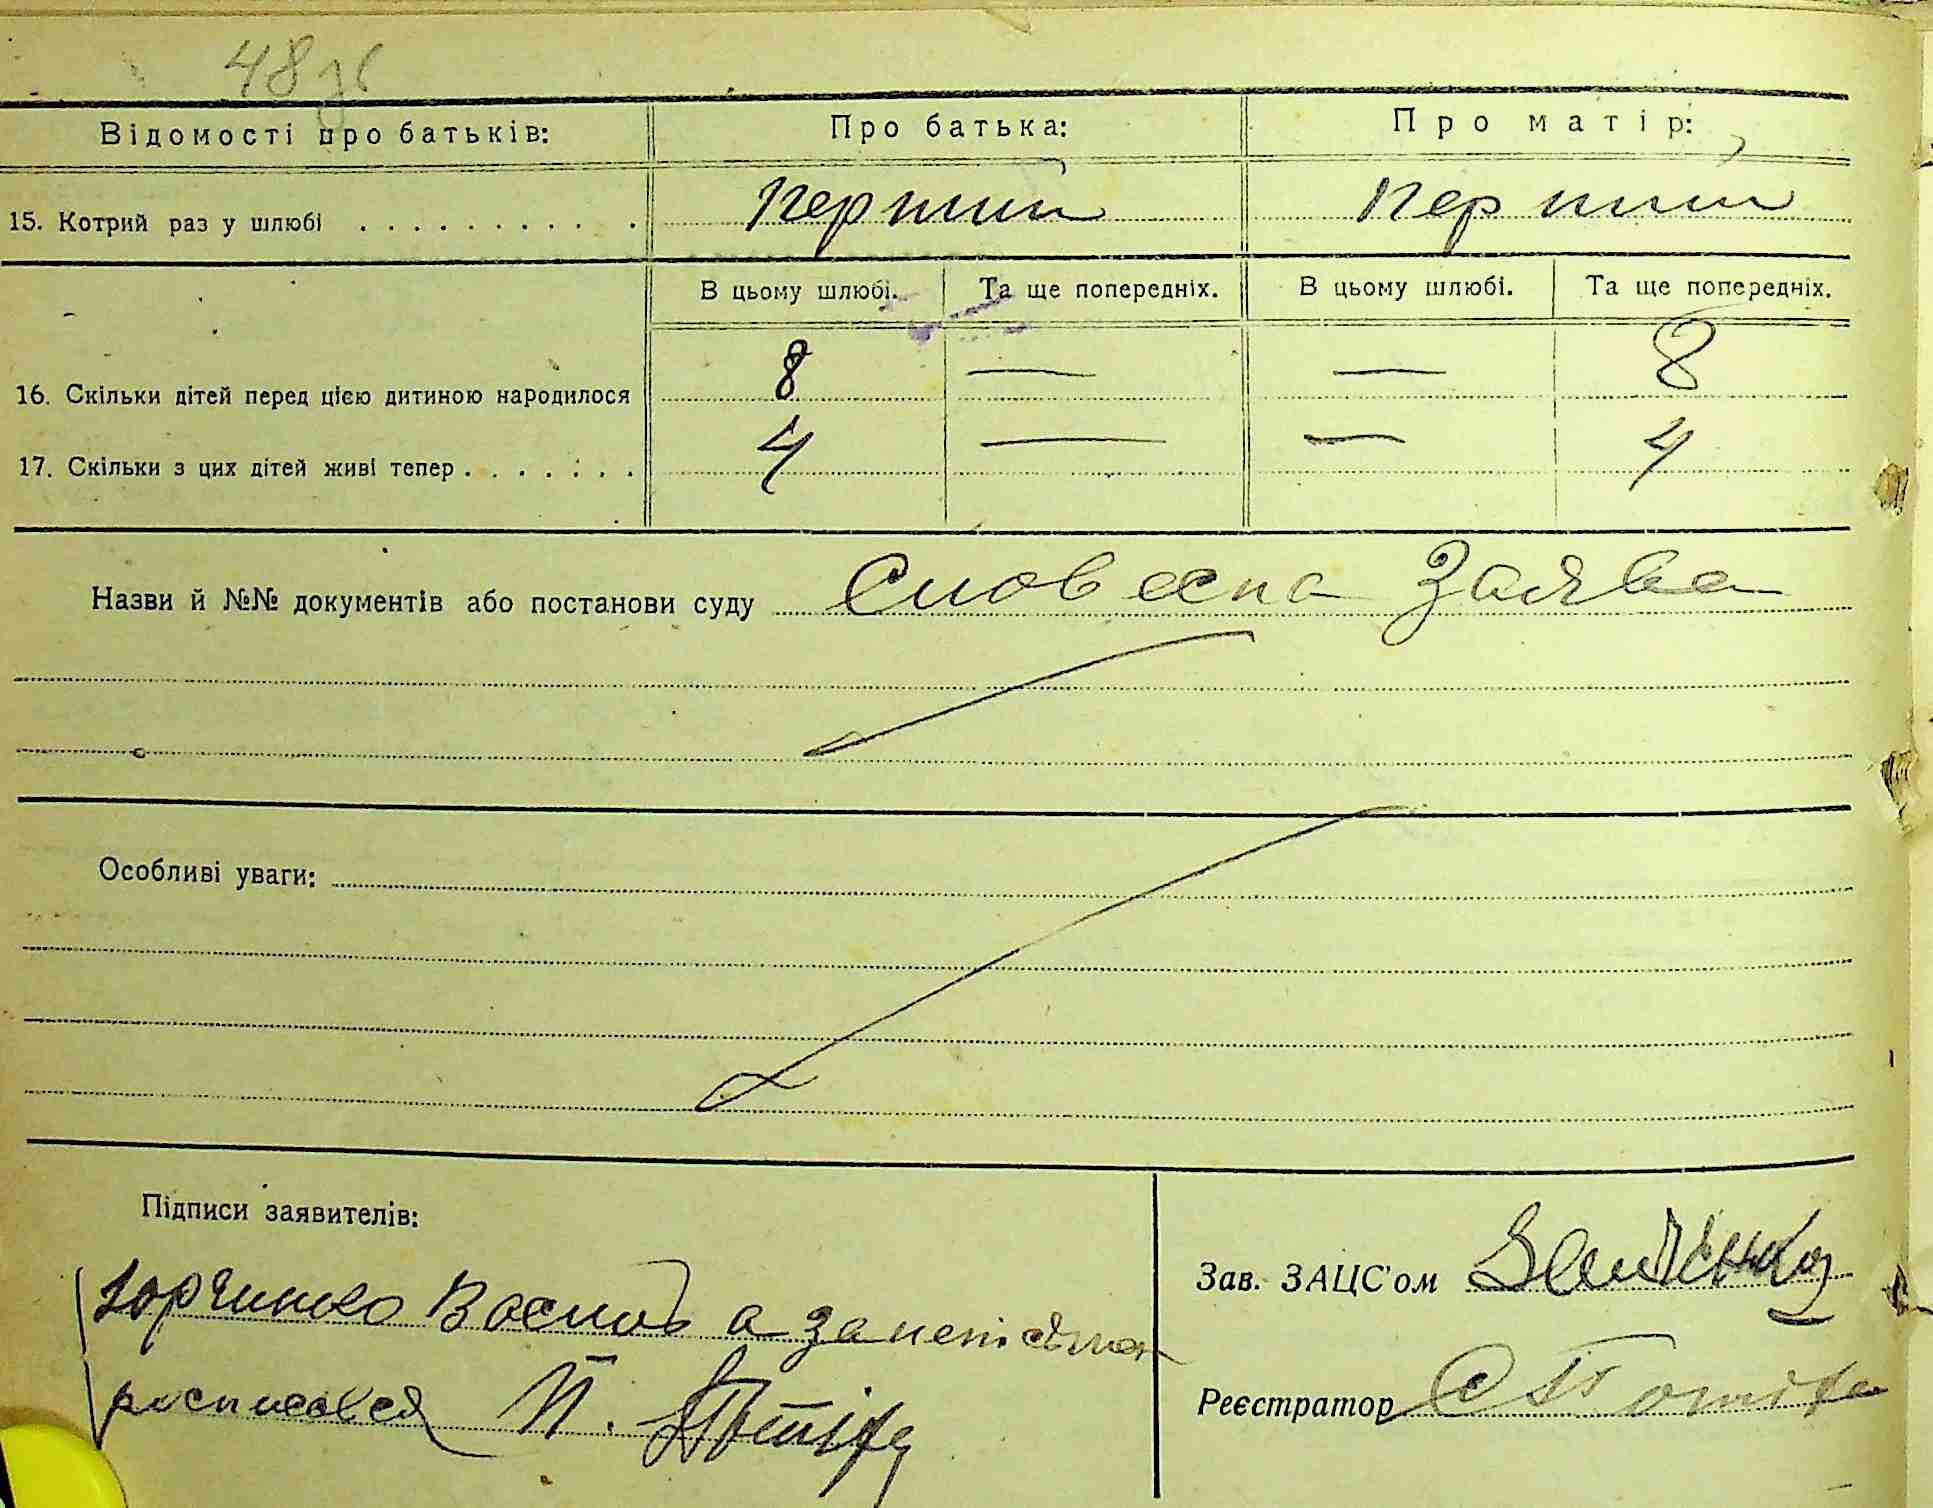 48
Відомості про батьків: Про батька: Про матір:
15. Котрий раз у шлюбі . . . . . . . . . . . Перший Перший
В цьому шлюбі. Та ще попередніх. В цьому шлюбі. Та ще попередніх.
16. Скільки дітей перед цією дитиною народилося 8 — — 8
17. Скільки з цих дітей живі тепер . . . . . . . 4 — — 4
Назви й №№ документів або постанови суду Словесна Заява
Особливі уваги:
Підписи заявителів:
Зав. ЗАЦС'ом
а за неписьмен
Реєстратор
росписався П.